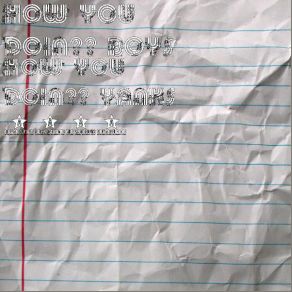 HOW YOU
DOIN?? BOYS
HOW YOU
DOIN?? YANKS